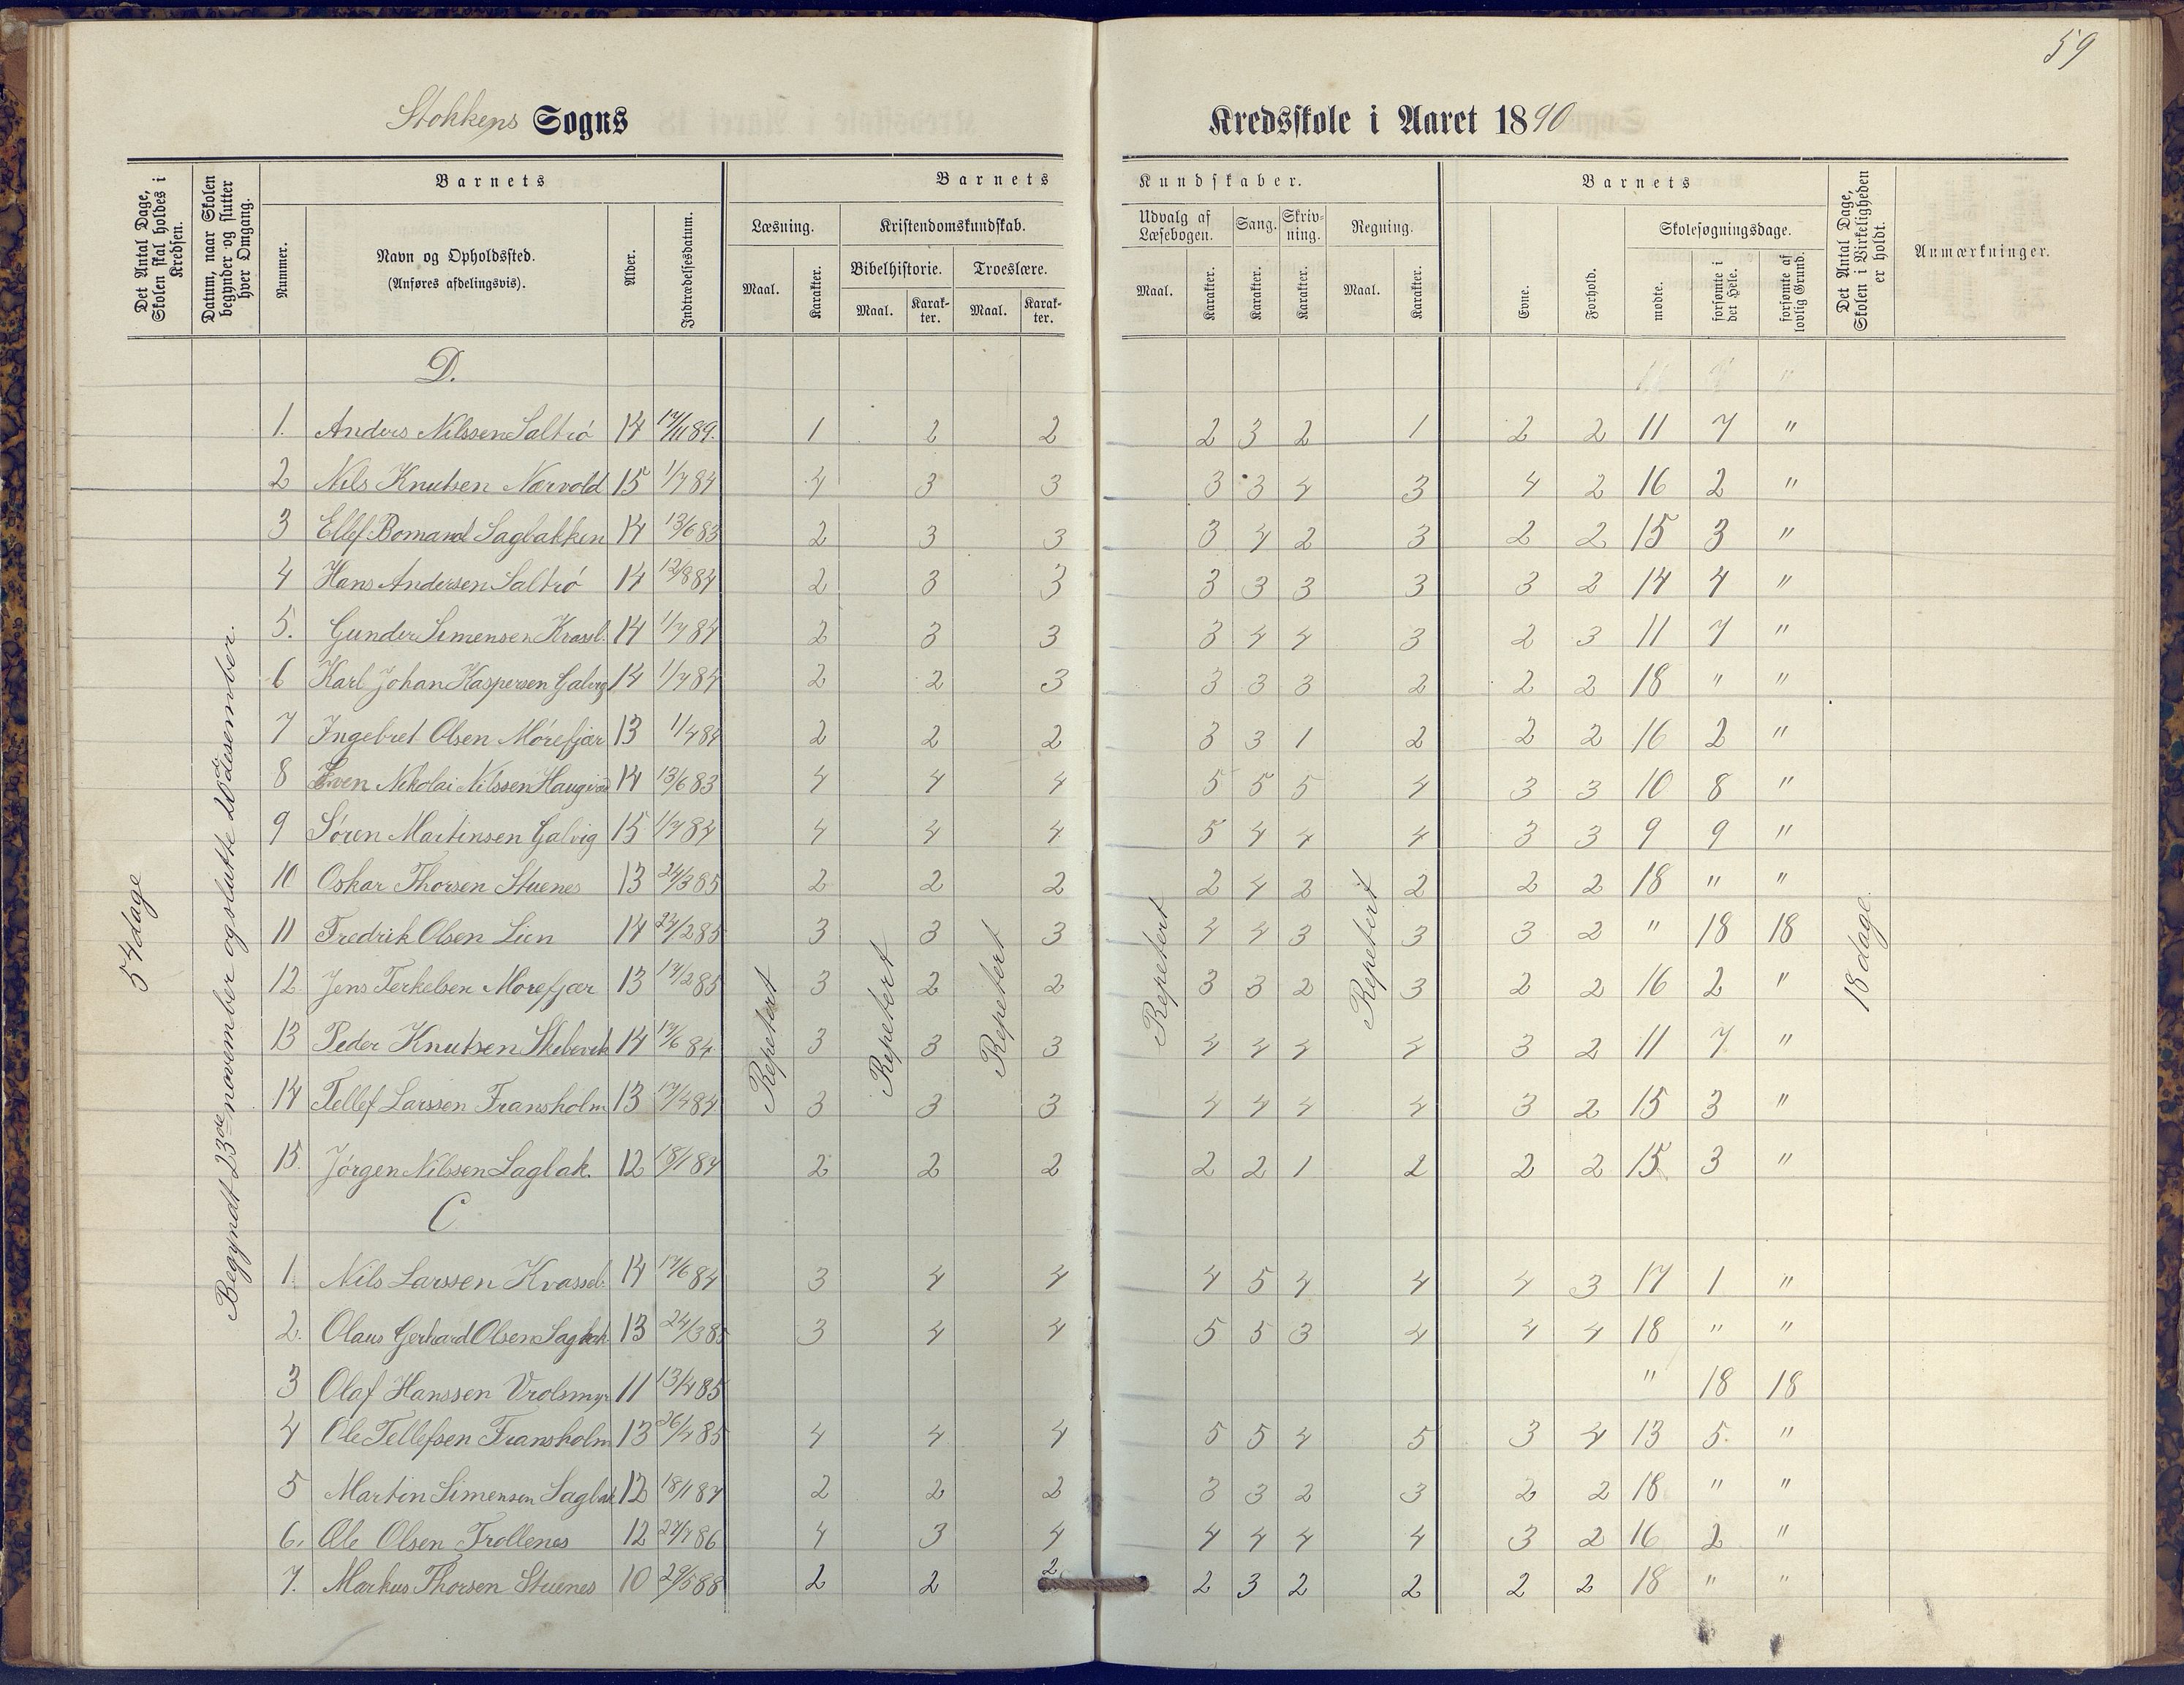 59
Stokkens Sogns Kredsskole i Aaret 1890
Det Antal Dage, Skolen skal holdes i Kredsen.
Datum, naar Skolen begynder og slutter hver Omgang.
Barnets
Nummer.
Navn og Opholdssted.
(Anføres afdelingsvis).
Alder.
Indtrædelsesdatum.
Barnets Kundskaber.
Læsning.
Maal. Karakter.
Kristendomskundskab.
Bibelhistorie. Troeslære.
Maal. Karakter. Maal. Karakter.
Udvalg af Læsebogen.
Maal. Karakter.
Sang.
Karakter.
Skrivning.
Karakter.
Regning.
Maal. Karakter.
Barnets
Evne. Forhold.
Skolesøgningsdage.
mødte. forsømte i det Hele. forsømte af lovlig Grund.
Det Antal Dage, Skolen i Virkeligheden er holdt.
Anmærkninger.
54 dage
Begyndt 23de november og slutte 20de desember.
Repetert Repetert Repetert Repetert Repetert
18 dage
D.
1. Anders Nilssen Saltrø 14 17/11 89. 1 2 2 2 3 2 1 2 2 11 7 "
2 Nils Knutsen Nærvold 15 1/7 84 4 3 3 3 3 4 3 4 2 16 2 "
3 Ellef Bomand Sagbakken 14 13/6 83 2 3 3 3 4 2 3 2 2 15 3 "
4 Hans Andersen Saltrø 14 12/8 84 2 3 3 3 3 3 3 3 2 14 4 "
5. Gunder Simensen Krassl. 14 1/7 84 2 3 3 3 4 4 3 2 3 11 7 "
6 Karl Johan Kaspersen Galvig 14 1/7 84 2 2 3 3 3 3 2 2 2 18 " "
7 Ingebret Olsen Mørefjær 13 1/7 84 2 2 2 3 3 1 2 2 2 16 2 "
8 Sven Nikolai Nilssen 14 13/6 83 4 4 4 5 5 5 4 3 3 10 8 "
9 Søren Martinsen Galvig 15 1/7 84 4 4 4 5 4 4 4 3 3 9 9 "
10 Oskar Thorsen Stuenes 13 24/3 85 2 2 2 2 4 2 2 2 2 18 " "
11 Fredrik Olsen Lien 14 24/2 85 3 3 3 4 4 3 3 3 2 " 18 18
12. Jens Terkelsen Mørefjær 13 17/2 85 3 2 2 3 3 2 3 2 2 16 2 "
13 Peder Knutsen Skibevik 14 17/6 84 3 3 3 4 4 4 4 3 2 11 7 "
14 Tellef Larssen Fransholm 13 17/4 84 3 3 3 4 4 4 4 3 2 15 3 "
15. Jørgen Nilssen Sagbak. 12 18/1 84 2 2 2 2 2 1 2 2 2 15 3 "
C
1. Nils Larssen Kvassel. 14 17/6 84 3 4 4 4 5 4 4 4 3 17 1 "
2. Olaus Gerhard Olsen Sagbak 13 24/3 85 3 4 4 5 5 3 4 4 4 18 " "
3 Olaf Hanssen Vrolsmyr 11 13/4 85 " 18 18
4 Ole Tellefsen Fransholm 13 26/4 85 4 4 4 5 5 4 5 3 4 13 5. "
5 Martin Simensen Sagbak 12 18/1 87 2 2 2 3 3 2 3 2 2 18 " "
6. Ole Olsen Trollenes 12 27/4 86 4 3 4 4 4 4 4 3 2 16 2 "
7. Markus Thorsen Stuenes 10 29/5 88 2 2 2 2 3 2 2 2 2 18 " "